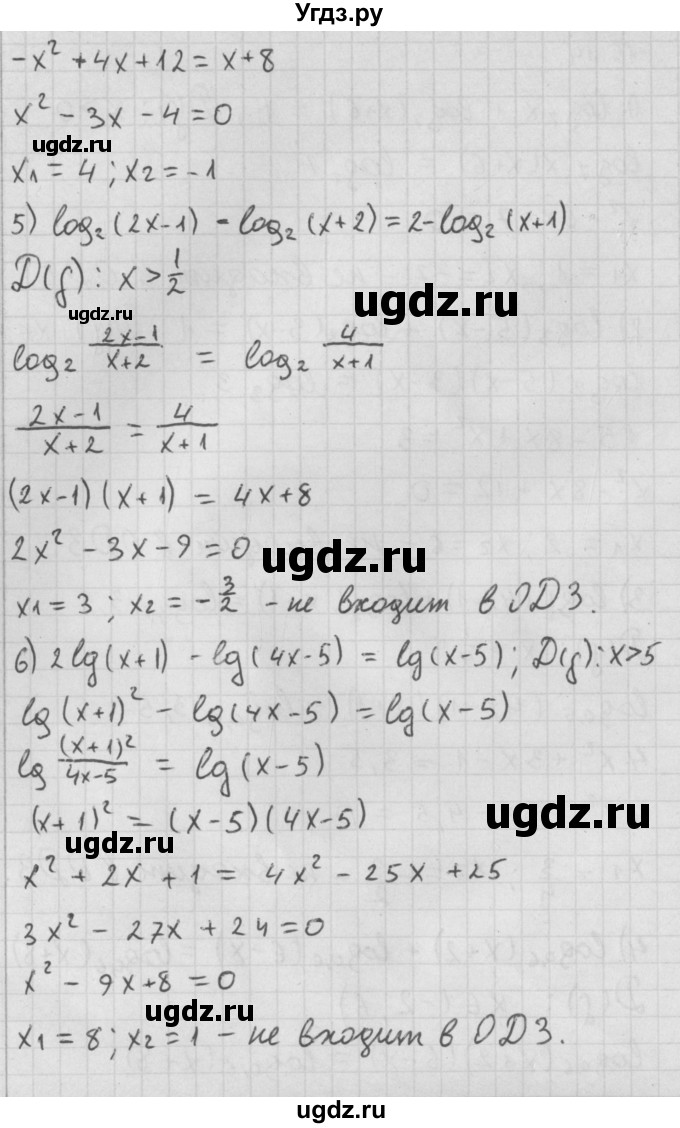 Угдз.ру
-x² + 4x + 12 = x + 8
x² - 3x - 4 = 0
ugdz.ru
x₁ = 4 ; x₂ = -1
5) log₂(2x-1) - log₂(x+2) = 2 - log₂(x+1)
D(f): x > 1/2
ugdz.ru
ugdz.ru
log₂ (2x-1)/(x+2) = log₂ 4/(x+1)
(2x-1)/(x+2) = 4/(x+1)
(2x-1)(x+1) = 4x+8
2x² - 3x - 9 = 0
ugdz.ru
x₁ = 3 ; x₂ = -3/2 - не входит в ОДЗ.
6) 2lg(x+1) - lg(4x-5) = lg(x-5); D(f): x>5
lg(x+1)² - lg(4x-5) = lg(x-5)
lg (x+1)²/(4x-5) = lg(x-5)
(x+1)² = (x-5)(4x-5)
ugdz.ru
ugdz.ru
x² + 2x + 1 = 4x² - 25x + 25
3x² - 27x + 24 = 0
x² - 9x + 8 = 0
ugdz.ru
x₁ = 8 ; x₂ = 1 - не входит в ОДЗ.
ugdz.ru